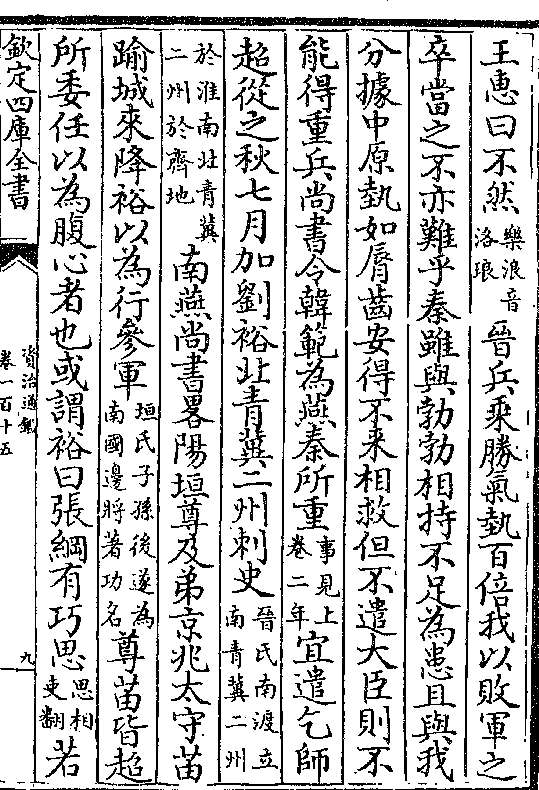 王惠曰不然樂浪音洛琅晉兵乘勝氣埶百倍我以敗軍之
卒當之不亦難乎秦雖與勃勃相持不足為患且與我
分據中原埶如脣齒安得不来相救但不遣大臣則不
能得重兵尚書令韓範為燕秦所重事見上卷二年宜遣乞師
超從之秋七月加劉裕北青冀二州刺史晉氏南渡立南青冀二州
於淮南北青冀二州於齊地南燕尚書畧陽垣尊及弟京兆太守苗
踰城來降裕以為行參軍垣氏子孫後遂為南國邊將著功名尊苗皆超
所委任以為腹心者也或謂裕曰張綱有巧思思相吏翻若
欽定四庫全書
資治通鑑
卷一百十五
九